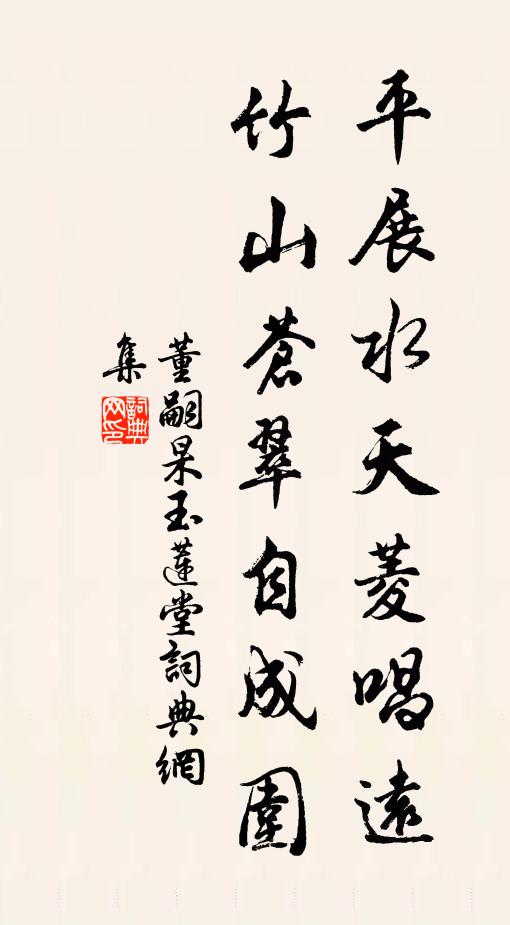 平展水天菱唱遠
竹山蒼翠自成圍
董嗣杲玉蓮堂詞典網
集
詞典
网印